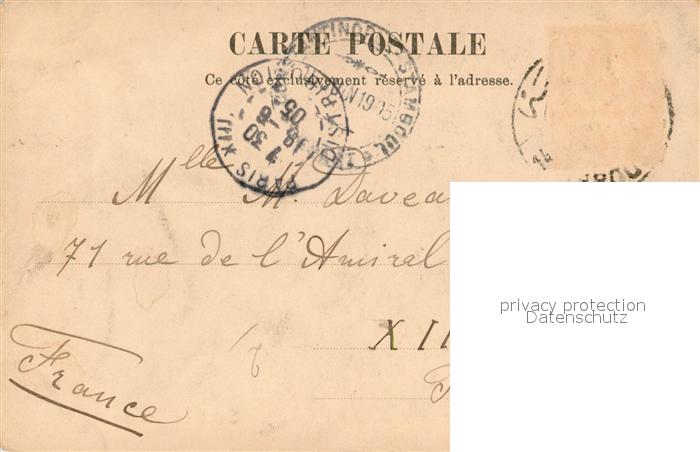 CARTE POSTALE
Ce côté exclusivement réservé à l'adresse.
STAMBOUL
PARIS XIII
DISTRIBUTION
7 30
18 - 1
05
Mlle M. Davea
71 rue de l'Amiral
XII
France
privacy protection
Datenschutz